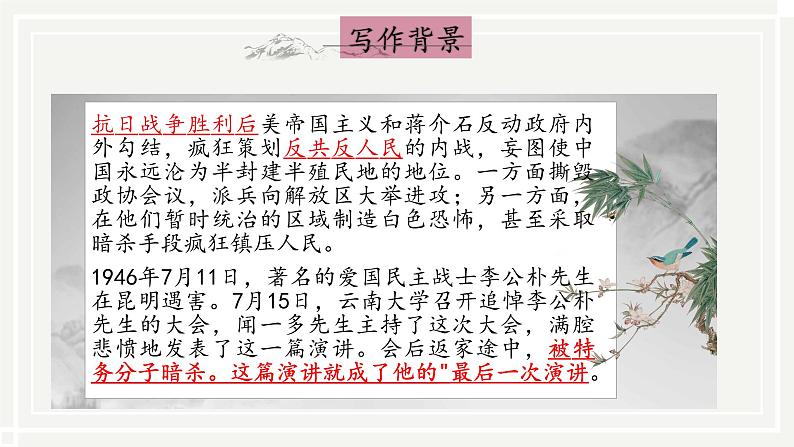 写作背景
抗日战争胜利后美帝国主义和蒋介石反动政府内
外勾结，疯狂策划反共反人民的内战，妄图使中
国永远沦为半封建半殖民地的地位。一方面撕毁
政协会议，派兵向解放区大举进攻；另一方面，
在他们暂时统治的区域制造白色恐怖，甚至采取
暗杀手段疯狂镇压人民。
1946年7月11日，著名的爱国民主战士李公朴先生
在昆明遇害。7月15日，云南大学召开追悼李公朴
先生的大会，闻一多先生主持了这次大会，满腔
悲愤地发表了这一篇演讲。会后返家途中，被特
务分子暗杀。这篇演讲就成了他的"最后一次演讲。